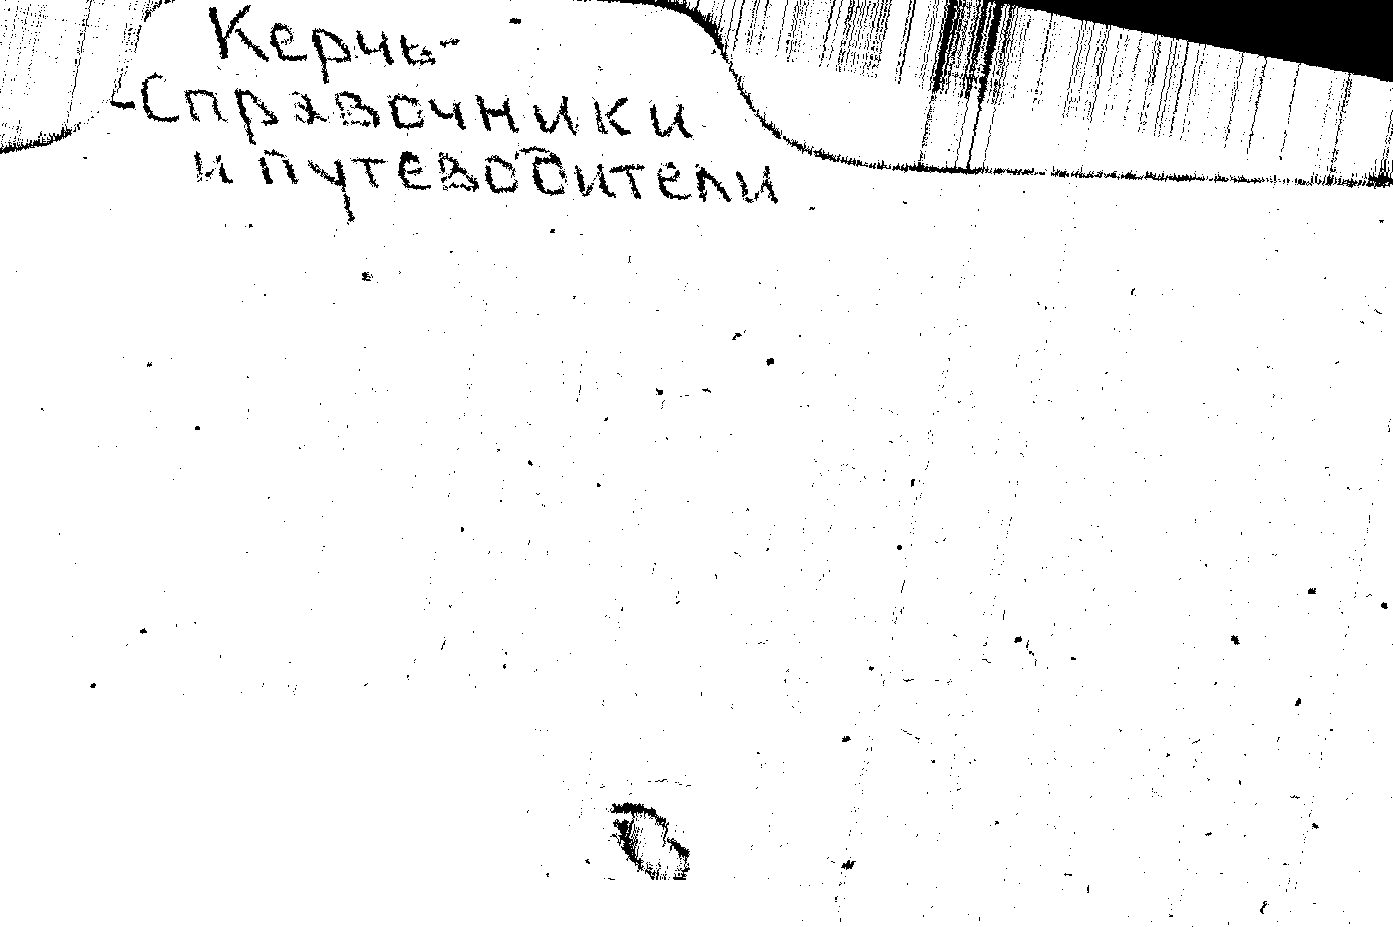 Керчь-
-Справочники
и путеводители